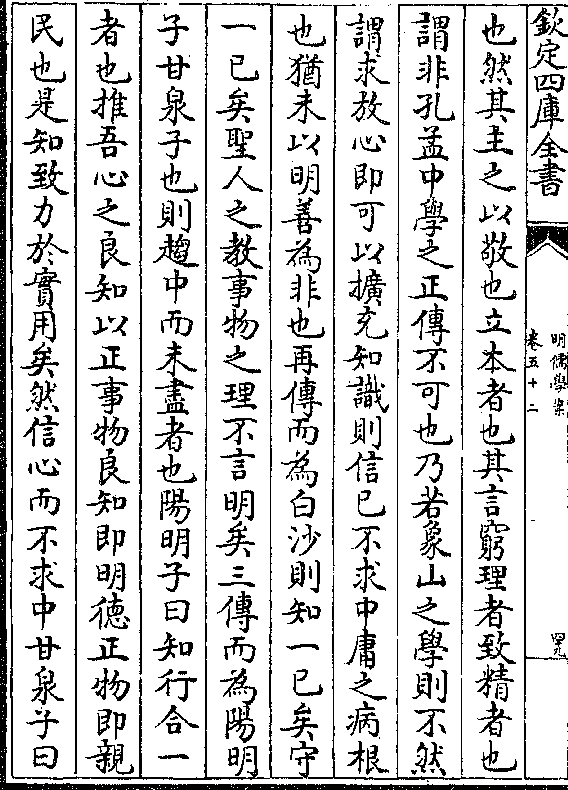 欽定四庫全書
明儒學案
卷五十二
四九
也然其主之以敬也立本者也其言窮理者致精者也
謂非孔孟中學之正傳不可也乃若象山之學則不然
謂求放心即可以擴充知識則信已不求中庸之病根
也猶未以明善為非也再傳而為白沙則知一已矣守
一已矣聖人之教事物之理不言明矣三傳而為陽明
子甘泉子也則趨中而未盡者也陽明子曰知行合一
者也推吾心之良知以正事物良知即明德正物即親
民也是知致力於實用矣然信心而不求中甘泉子曰